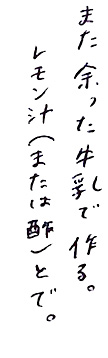 また余った牛乳で作る。
レモン汁(または酢)とで。